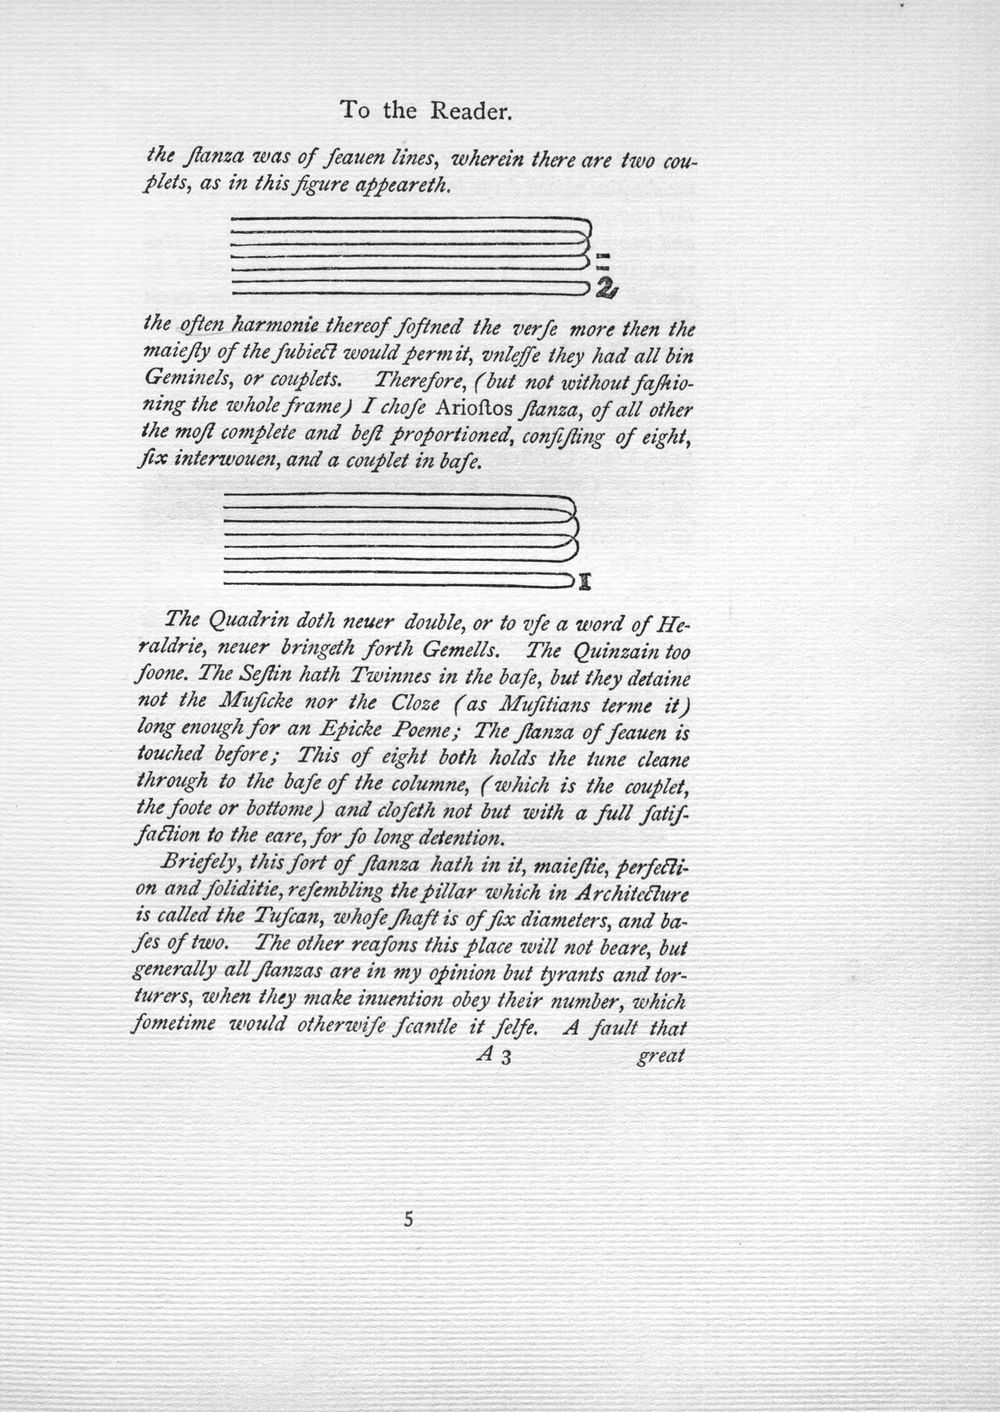 To the Reader.
the ſtanza was of ſeauen lines, wherein there are two cou-
plets, as in this figure appeareth.
1
2
the often harmonie thereof ſoftned the verſe more then the
maieſty of the ſubiect would permit, vnleſſe they had all bin
Geminels, or couplets. Therefore, (but not without faſhio-
ning the whole frame) I choſe Arioſtos ſtanza, of all other
the moſt complete and beſt proportioned, conſiſting of eight,
ſix interwouen, and a couplet in baſe.
1
The Quadrin doth neuer double, or to vſe a word of He-
raldrie, neuer bringeth forth Gemells. The Quinzain too
ſoone. The Seſtin hath Twinnes in the baſe, but they detaine
not the Muſicke nor the Cloze (as Muſitians terme it)
long enough for an Epicke Poeme; The ſtanza of ſeauen is
touched before; This of eight both holds the tune cleane
through to the baſe of the columne, (which is the couplet,
the foote or bottome) and cloſeth not but with a full ſatiſ-
faction to the eare, for ſo long detention.
Briefely, this ſort of ſtanza hath in it, maieſtie, perfecti-
on and ſoliditie, reſembling the pillar which in Architecture
is called the Tuſcan, whoſe ſhaft is of ſix diameters, and ba-
ſes of two. The other reaſons this place will not beare, but
generally all ſtanzas are in my opinion but tyrants and tor-
turers, when they make inuention obey their number, which
ſometime would otherwiſe ſcantle it ſelfe. A fault that
A 3 great
5